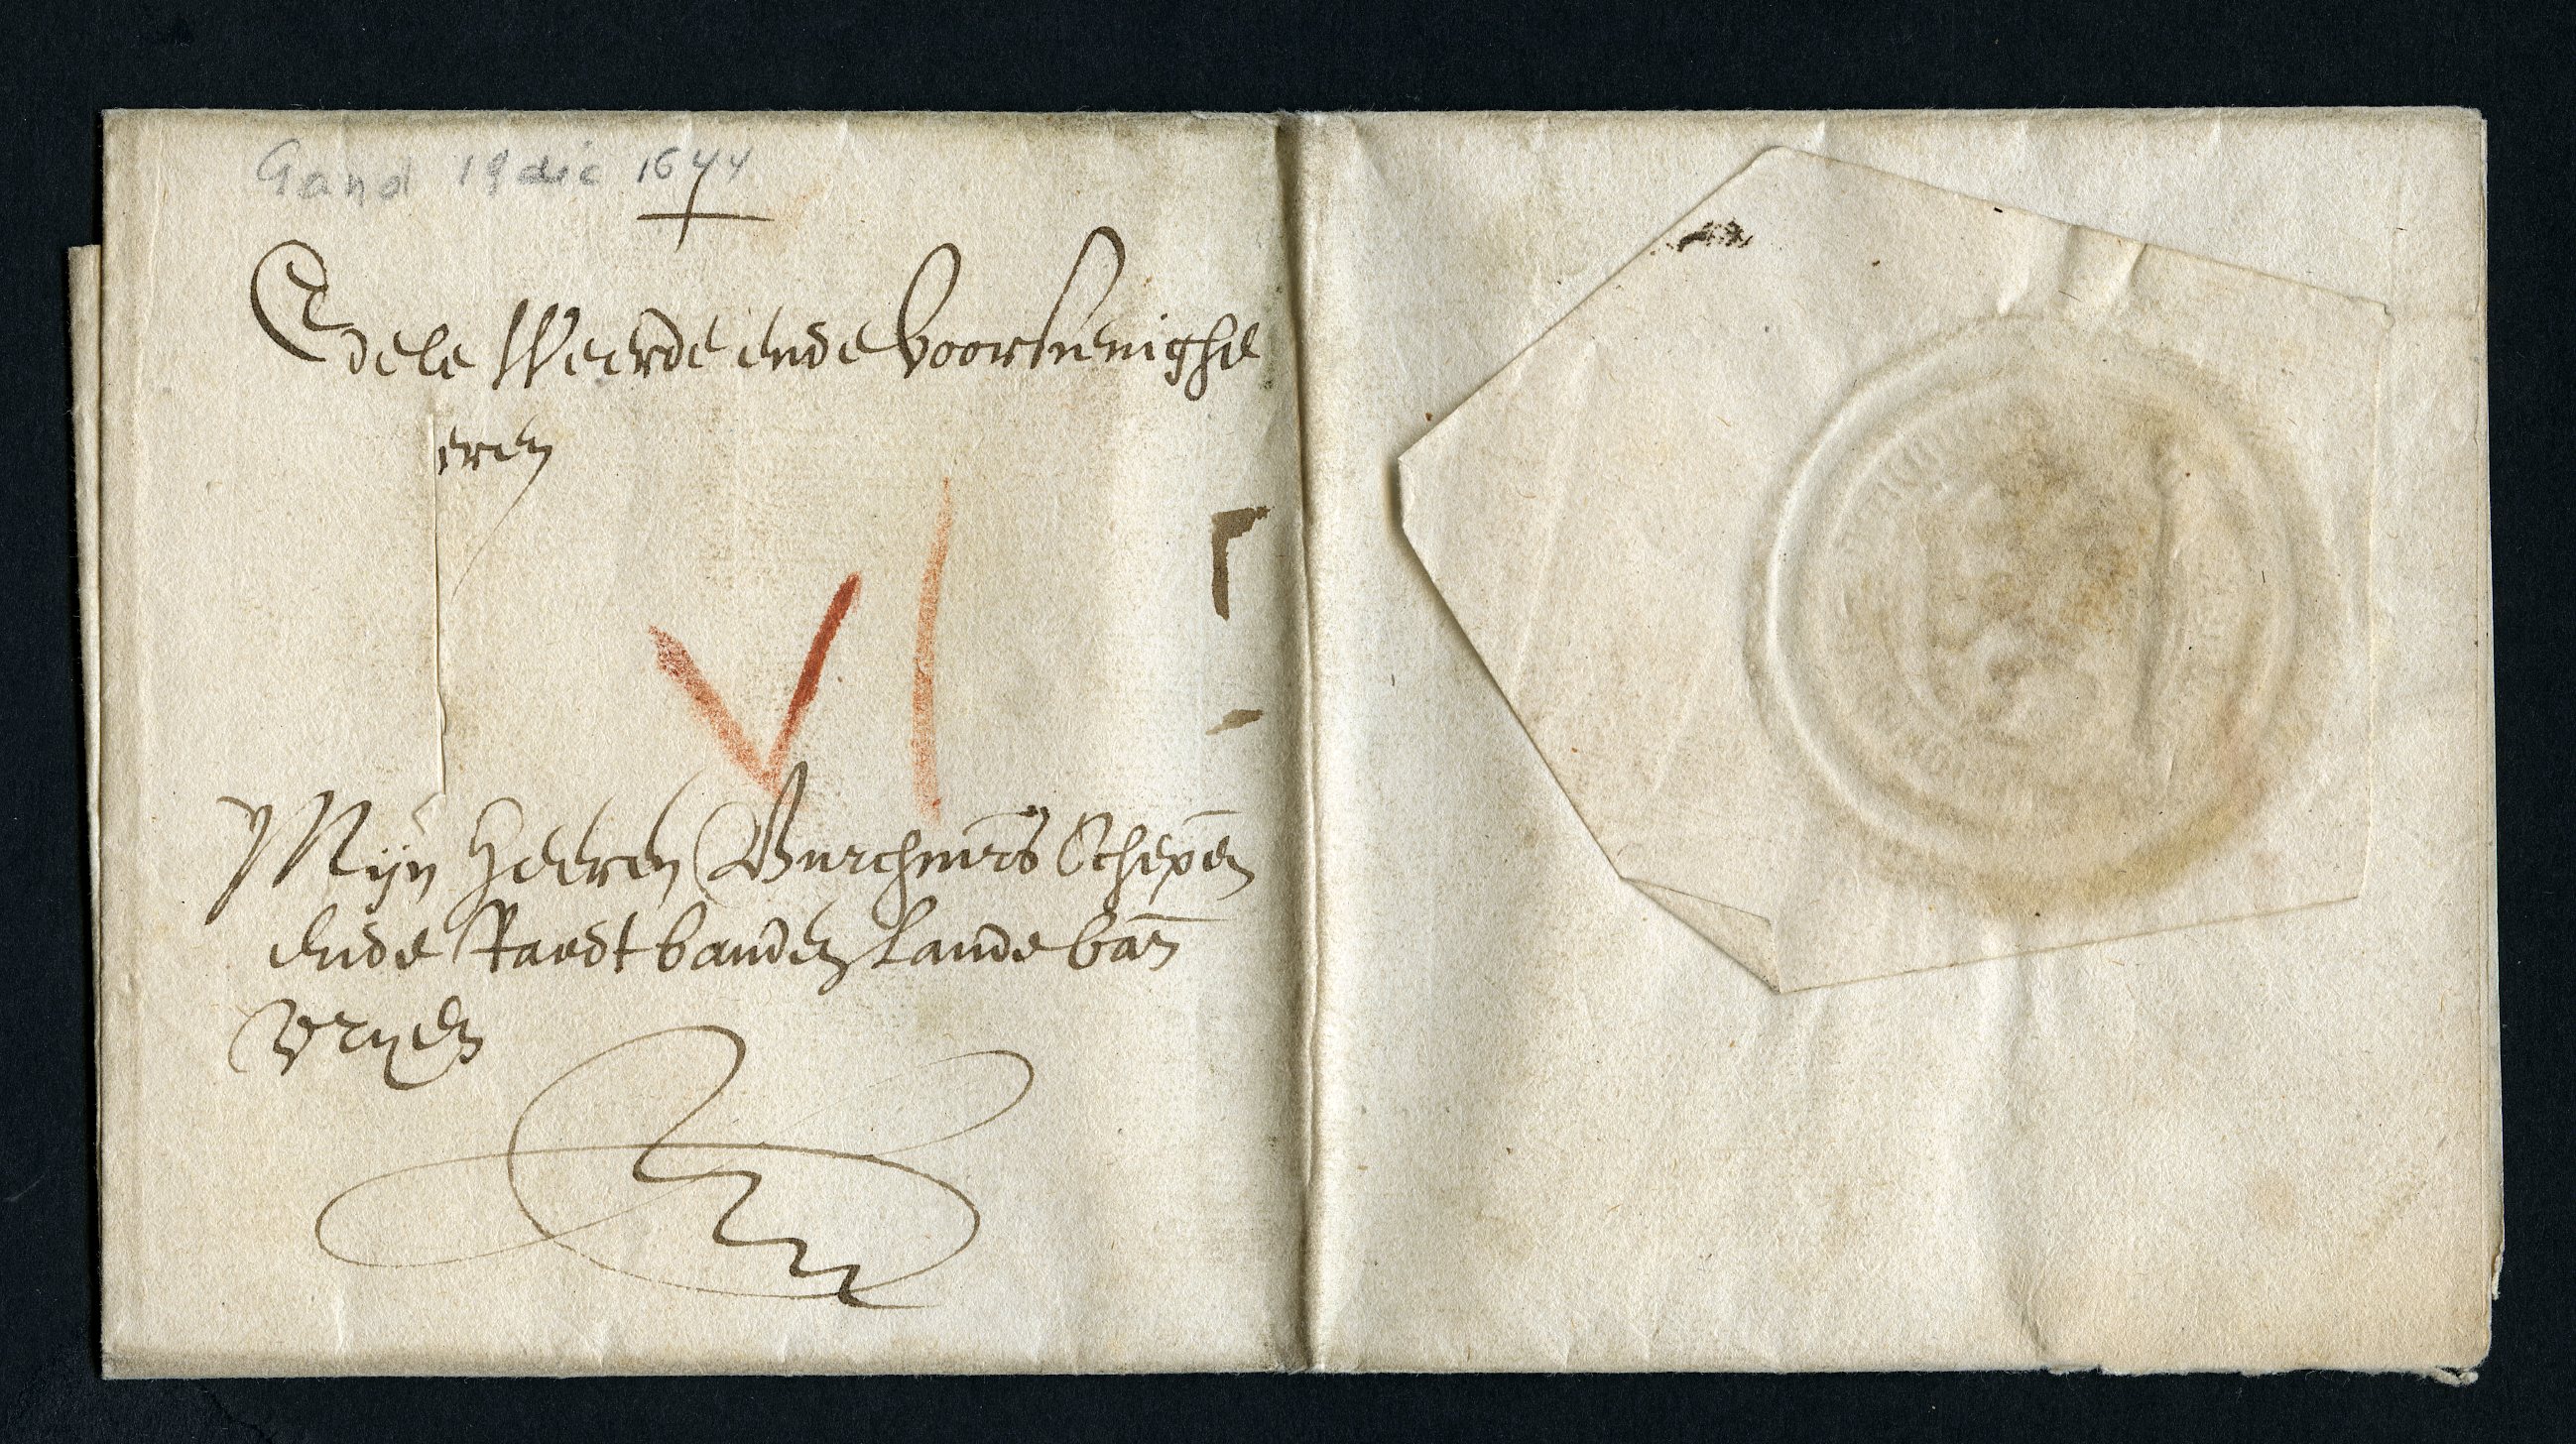 Gand 19 dic 1644
Edele Weerde ende Voorsienighe
eren
VI
Mijn Heeren Burchmrs Schepen
ende Raedt vanden Lande van
Vryen